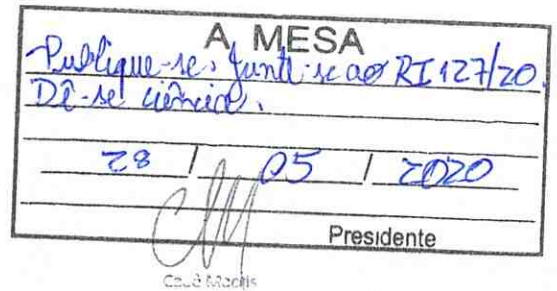 A MESA
Publique-se, junte-se ao RI 127/20.
Dê-se ciência.
28 / 05 / 2020
Presidente
Cauê Macris